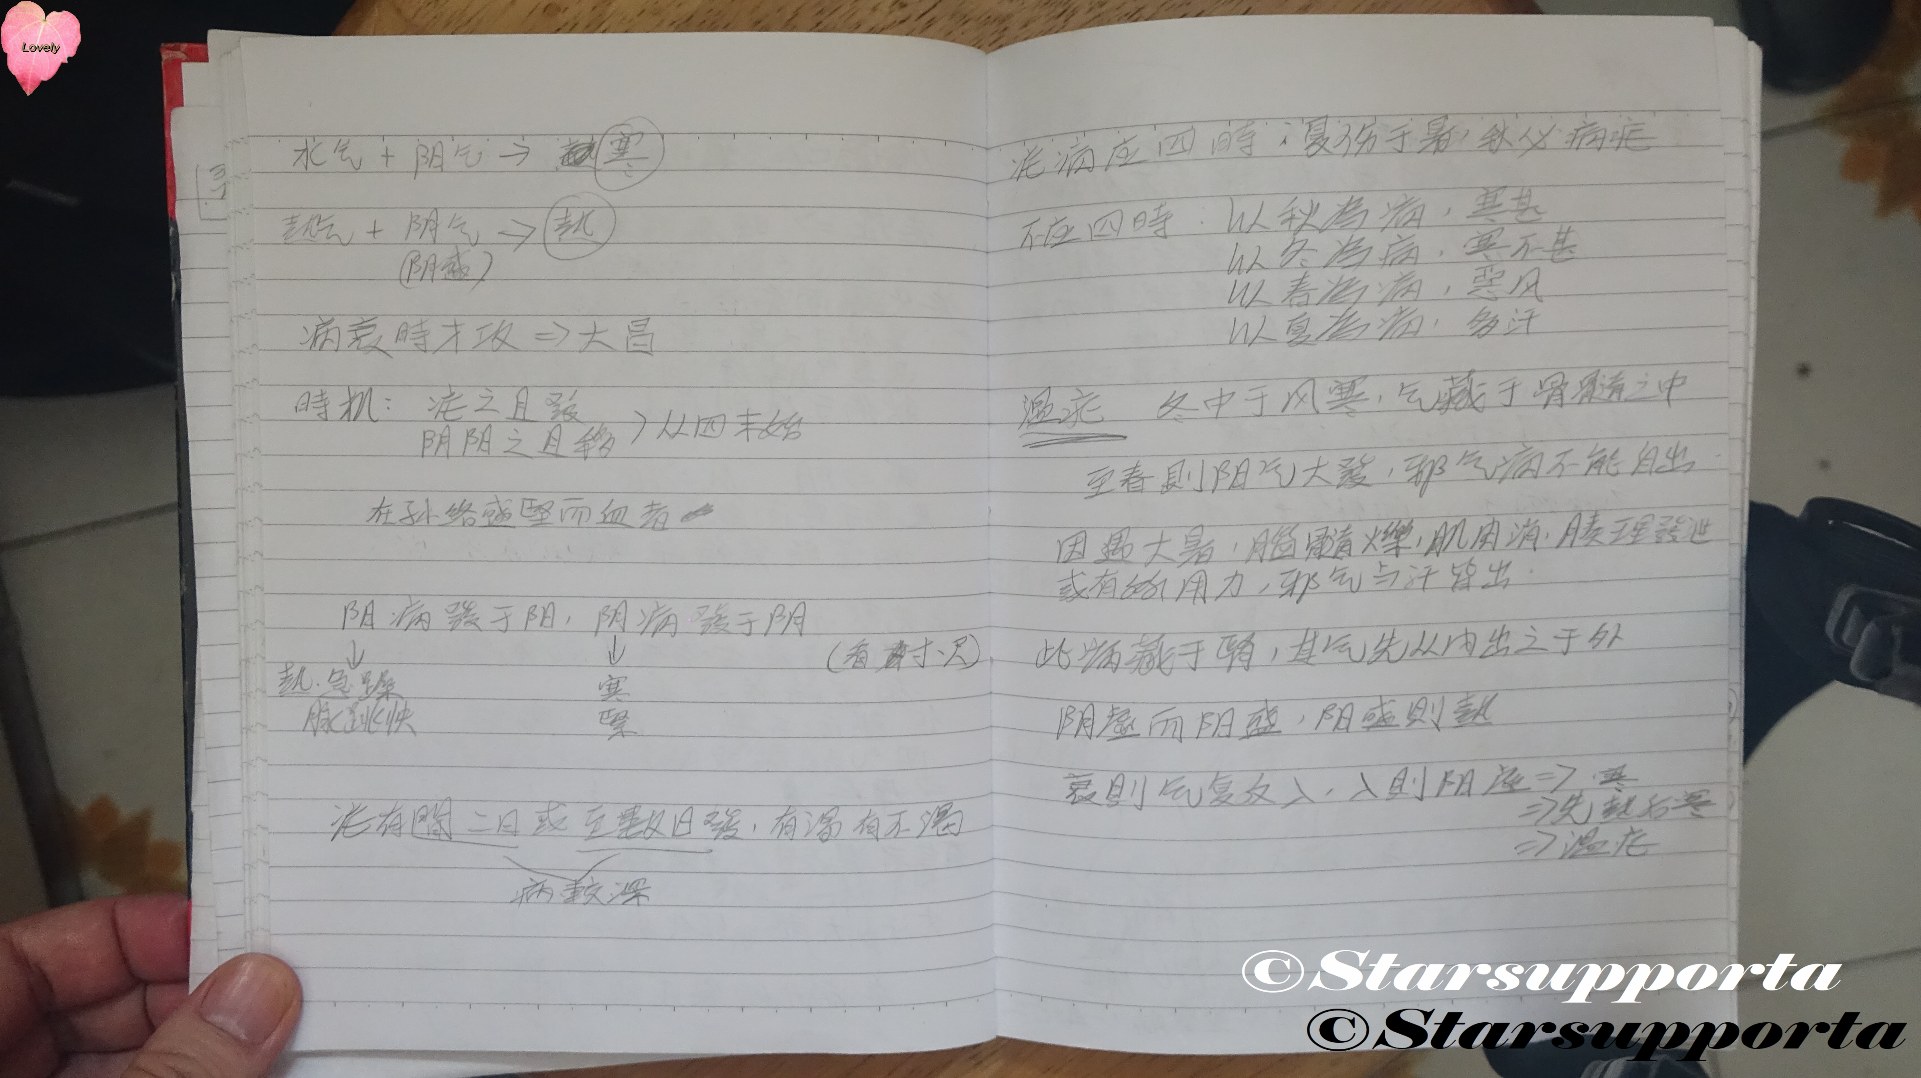 Lovely
水气 + 阴气 → 寒
热气 + 阳气 → 热
(阳盛)
病衰時才攻 => 大昌
時机: 疟之且發
阴阳之且移 > 从四末始
在孙络盛坚而血者
阳病發于阴, 阴病發于阳
(看寸尺)
↓ ↓
热.急躁 寒
脉跳快 坚
疟有間二日或至數日發, 有渴有不渴
病較深
疟病应四時:夏伤于暑,秋必病疟
不应四時. 以秋為病, 寒甚
以冬為病, 寒不甚
以春為病, 恶风
以夏為病, 多汗
温疟 冬中于风寒,气藏于骨髓之中
至春則阳气大發, 邪气病不能自出
因遇大暑,腦髓爍,肌肉消,腠理發泄
或有所用力,邪气与汗皆出.
此病藏于腎,其气先从内出之于外
阴虚而阳盛, 阳盛則热
衰則气复反入, 入則阳虚 => 寒
=> 先热后寒
=> 温疟
©Starsupporta
©Starsupporta